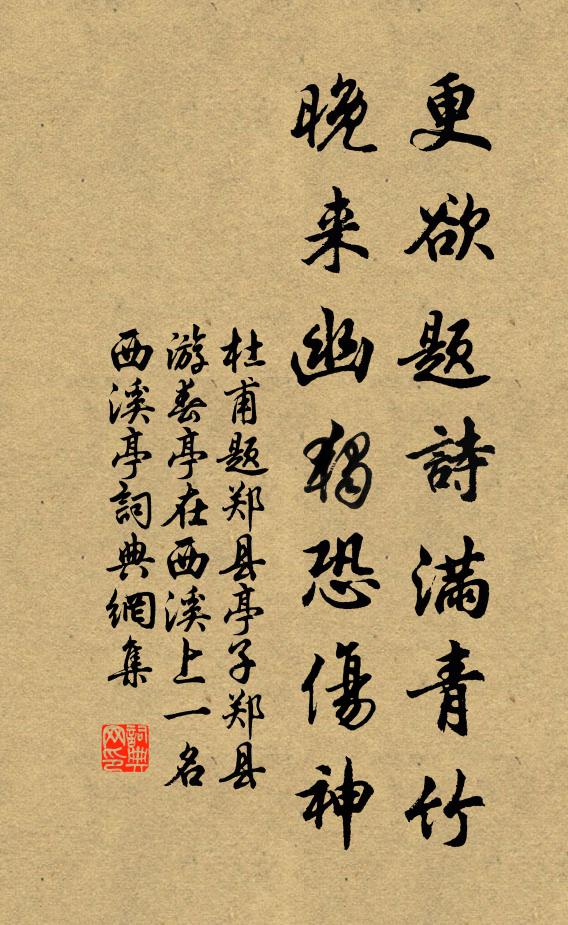 更欲题詩满青竹
晚来幽獨恐傷神
杜甫题郑县亭子郑县
游春亭在西溪上一名
西溪亭詞典網集
詞典网印